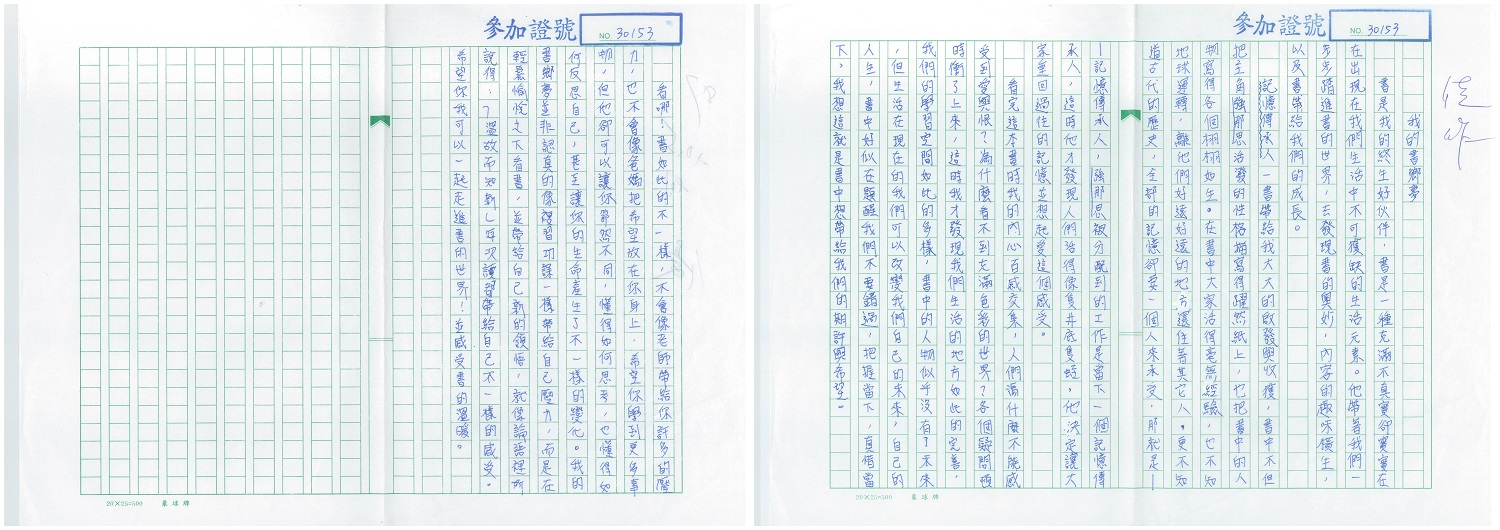 參加證號
NO. 30153
佳作
我的書鄉夢
書是我的終生好伙伴,書是一種充滿不真實卻實實在
在出現在我們生活中不可獲缺的生活元素。他帶著我們一
步步踏進書的世界,去發現書的奧妙,內容的趣味橫生,
以及書帶給我們的成長。
記憶傳承人一書帶給我大大的啟發與收獲,書中不但
把主角強那思活潑的性格描寫得躍然紙上,也把書中的人
物寫得各個栩栩如生。在書中大家活得毫無經驗,也不知
地球運轉,離他們好遠好遠的地方還住著其它人。更不知
道古代的歷史,全部的記憶卻要一個人來承受,那就是—
—記憶傳承人,強那思被分配到的工作是當下一個記憶傳
承人,這時他才發現人們活得像隻井底隻蛙,他決定讓大
家重回過往的記憶並想起愛這個感受。
看完這本書時我的內心百感交集,人們為什麼不能感
受到愛與恨?為什麼看不到充滿色彩的世界?各個疑問頓
時衝了上來,這時我才發現我們生活的地方如此的完善,
我們的學習空間如此的多樣,書中的人物似乎沒有了未來
,但生活在現在的我們可以改變我們自己的未來,自己的
人生,書中好似在題醒我們不要錯過,把握當下,真惜當
下,我想這就是書中想帶給我們的期許與希望。
20×25=500
星球牌
參加證號
NO. 30153
看哪!書如此的不一樣,不會像老師帶給你許多的壓
力,也不會像爸媽把希望放在你身上,希望你學到更多事
物,但他卻可以讓你節然不同,懂得如何思考,也懂得如
何反思自己,甚至讓你的生命產生了不一樣的變化。我的
書鄉夢並非認真的像複習功課一樣帶給自己壓力,而是在
輕鬆愉悅之下看書,並帶給自己新的領悟,就像論語裡所
說得:「溫故而知新」每次讀習帶給自己不一樣的感受。
希望你我可以一起走進書的世界!並感受書的溫暖。
20×25=500
星球牌